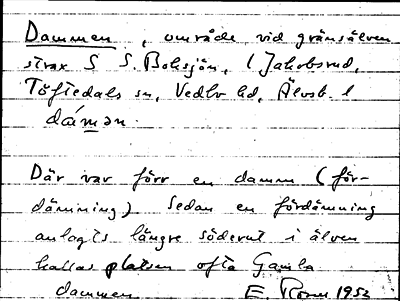 Dammen, område vid gränsälven
strax S S. Boksjön, l Jakobsrud,
Töftedals sn, Vedbo hd, Älvsb. l
dámən.
Där var förr en damm (för-
dämning). Sedan en fördämning
anlagts längre söderut i älven
kallas platsen ofta Gamla
dammen E. 1952